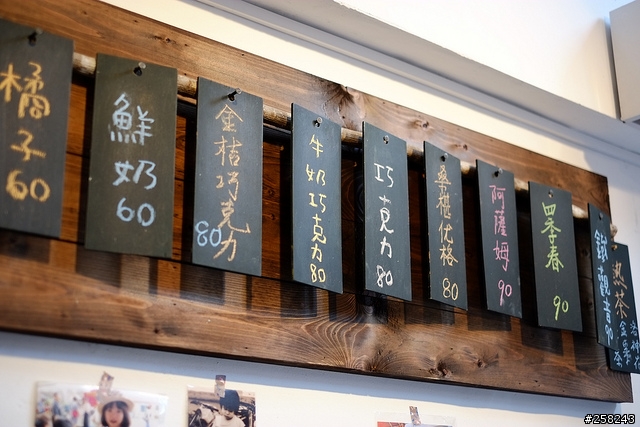 橘子60
鮮奶60
金桔巧克力80
牛奶巧克力80
巧克力80
桑椹优格80
阿薩姆90
四季春90
鉄觀音90
熱茶
#258243